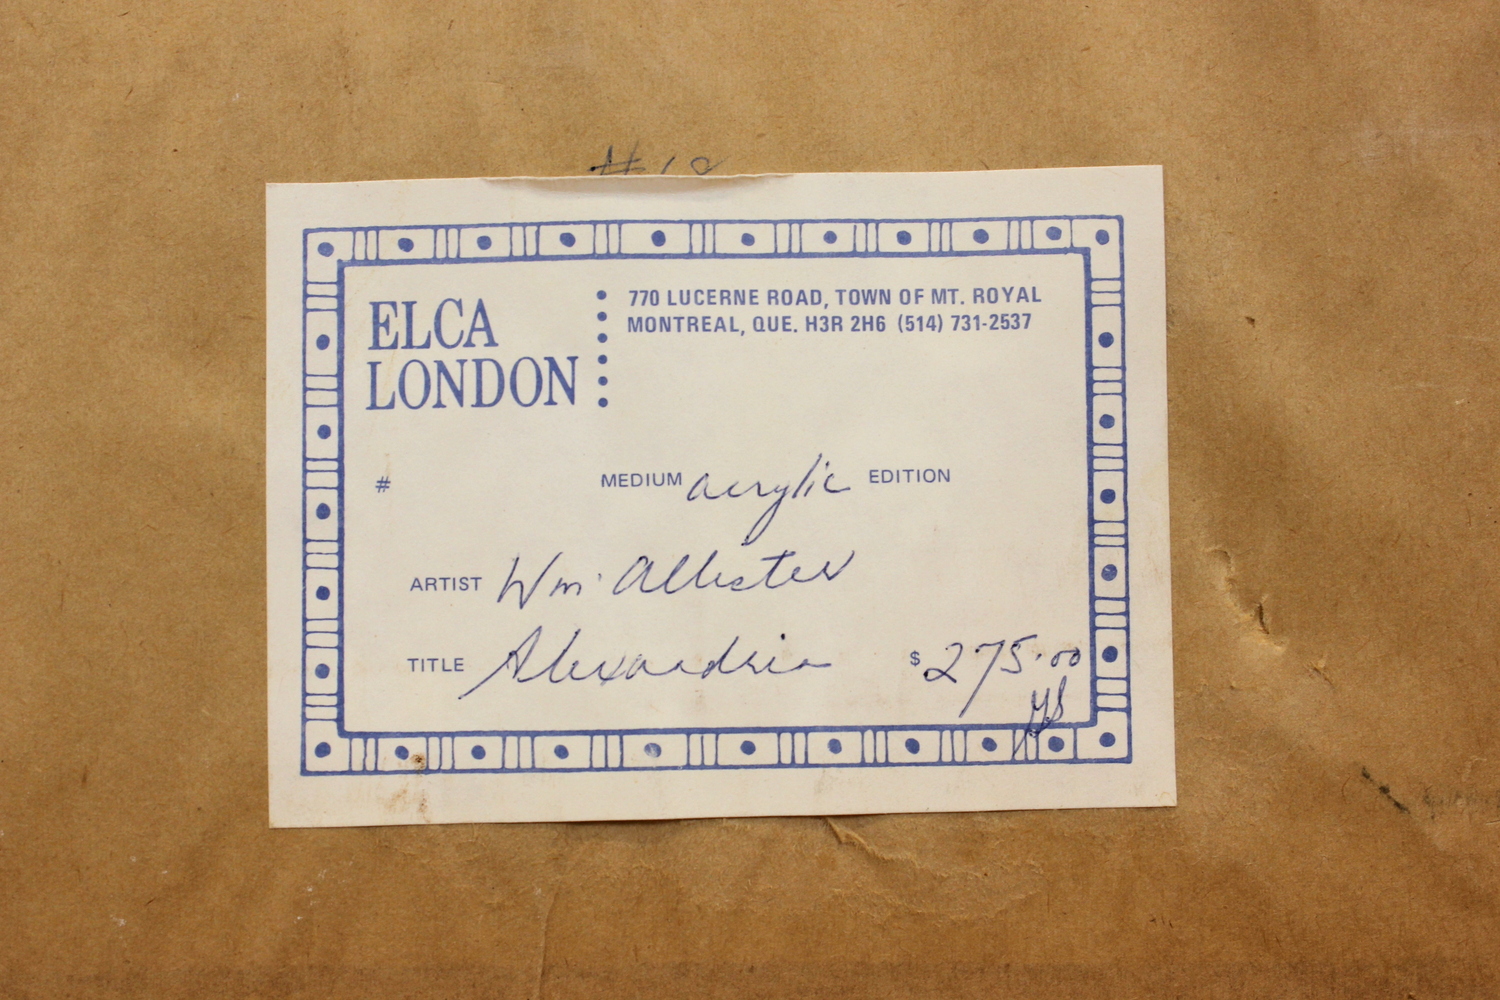 ELCA
LONDON
770 LUCERNE ROAD, TOWN OF MT. ROYAL
MONTREAL, QUE. H3R 2H6 (514) 731-2537
# MEDIUM acrylic EDITION
ARTIST Wm. Allister
TITLE Alexandria $ 275.00